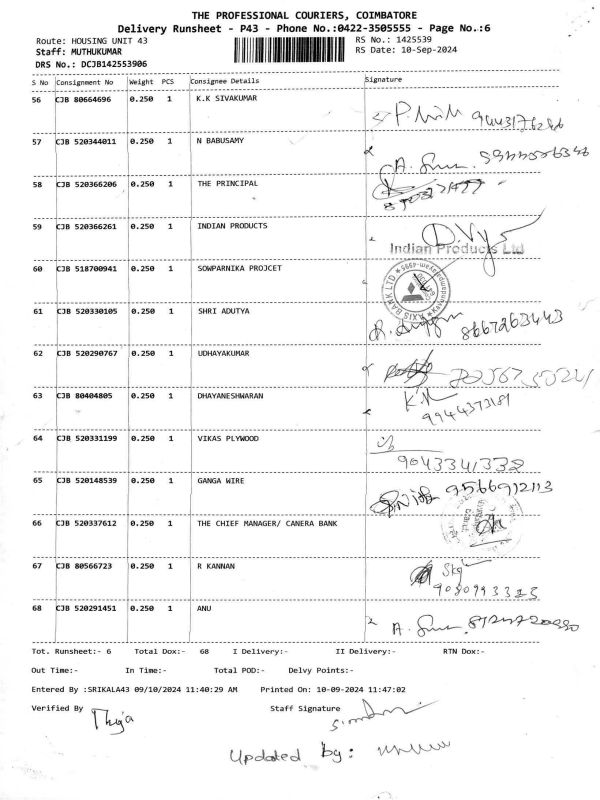 THE PROFESSIONAL COURIERS, COIMBATORE
Delivery Runsheet - P43 - Phone No.:0422-3505555 - Page No.:6
Route: HOUSING UNIT 43
RS No.: 1425539
Staff: MUTHUKUMAR
RS Date: 10-Sep-2024
DRS No.: DCJB142553906
S No Consignment No Weight PCS Consignee Details Signature
56 CJB 80664696 0.250 1 K.K SIVAKUMAR
57 CJB 520344011 0.250 1 N BABUSAMY
58 CJB 520366206 0.250 1 THE PRINCIPAL
59 CJB 520366261 0.250 1 INDIAN PRODUCTS
Indian Products Ltd
60 CJB 518700941 0.250 1 SOWPARNIKA PROJCET
AXIS BANK LTD
61 CJB 520330105 0.250 1 SHRI ADUTYA 8667263443
62 CJB 520290767 0.250 1 UDHAYAKUMAR
63 CJB 80404805 0.250 1 DHAYANESHWARAN
9944373181
64 CJB 520331199 0.250 1 VIKAS PLYWOOD
9043341332
65 CJB 520148539 0.250 1 GANGA WIRE 9566912113
66 CJB 520337612 0.250 1 THE CHIEF MANAGER/ CANERA BANK
67 CJB 80566723 0.250 1 R KANNAN
68 CJB 520291451 0.250 1 ANU
Tot. Runsheet:- 6 Total Dox:- 68 I Delivery:- II Delivery:- RTN Dox:-
Out Time:- In Time:- Total POD:- Delvy Points:-
Entered By :SRIKALA43 09/10/2024 11:40:29 AM Printed On: 10-09-2024 11:47:02
Verified By Staff Signature
Updated by: